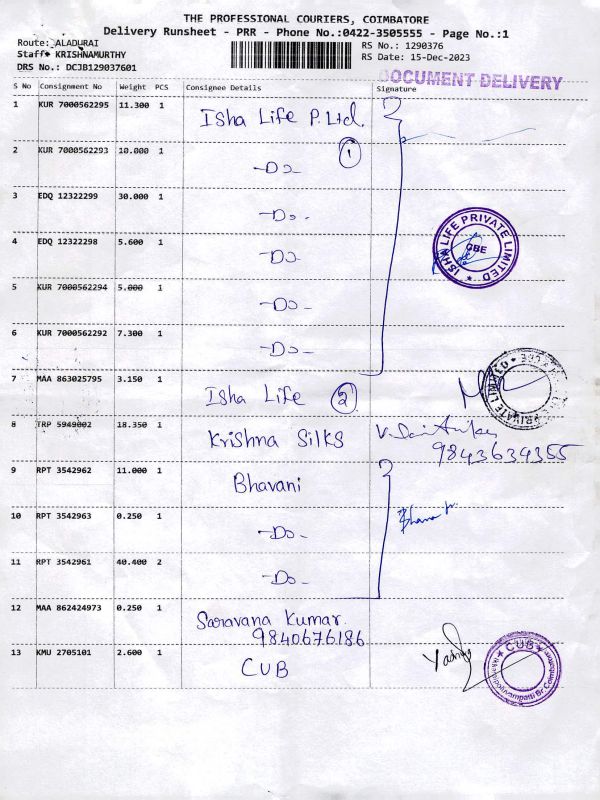 THE PROFESSIONAL COURIERS, COIMBATORE
Delivery Runsheet - PRR - Phone No.:0422-3505555 - Page No.:1
Route: ALADURAI
Staff: KRISHNAMURTHY
DRS No.: DCJB129037601
RS No.: 1290376
RS Date: 15-Dec-2023
DOCUMENT DELIVERY
S No Consignment No Weight PCS Consignee Details Signature
1 KUR 7000562295 11.300 1 Isha Life P. Ltd.
2 KUR 7000562293 10.000 1 -Do- 1
3 EDQ 12322299 30.000 1 -Do-
4 EDQ 12322298 5.600 1 -Do-
ISHA LIFE PRIVATE LIMITED
CBE
5 KUR 7000562294 5.000 1 -Do-
6 KUR 7000562292 7.300 1 -Do-
7 MAA 863025795 3.150 1 Isha Life 2
PRIVATE LIMITED
8 TRP 5949002 18.350 1 Krishna Silks
9843634355
9 RPT 3542962 11.000 1 Bhavani
10 RPT 3542963 0.250 1 -Do-
11 RPT 3542961 40.400 2 -Do-
12 MAA 862424973 0.250 1 Saravana Kumar.
9840676186
13 KMU 2705101 2.600 1 CUB
CUB